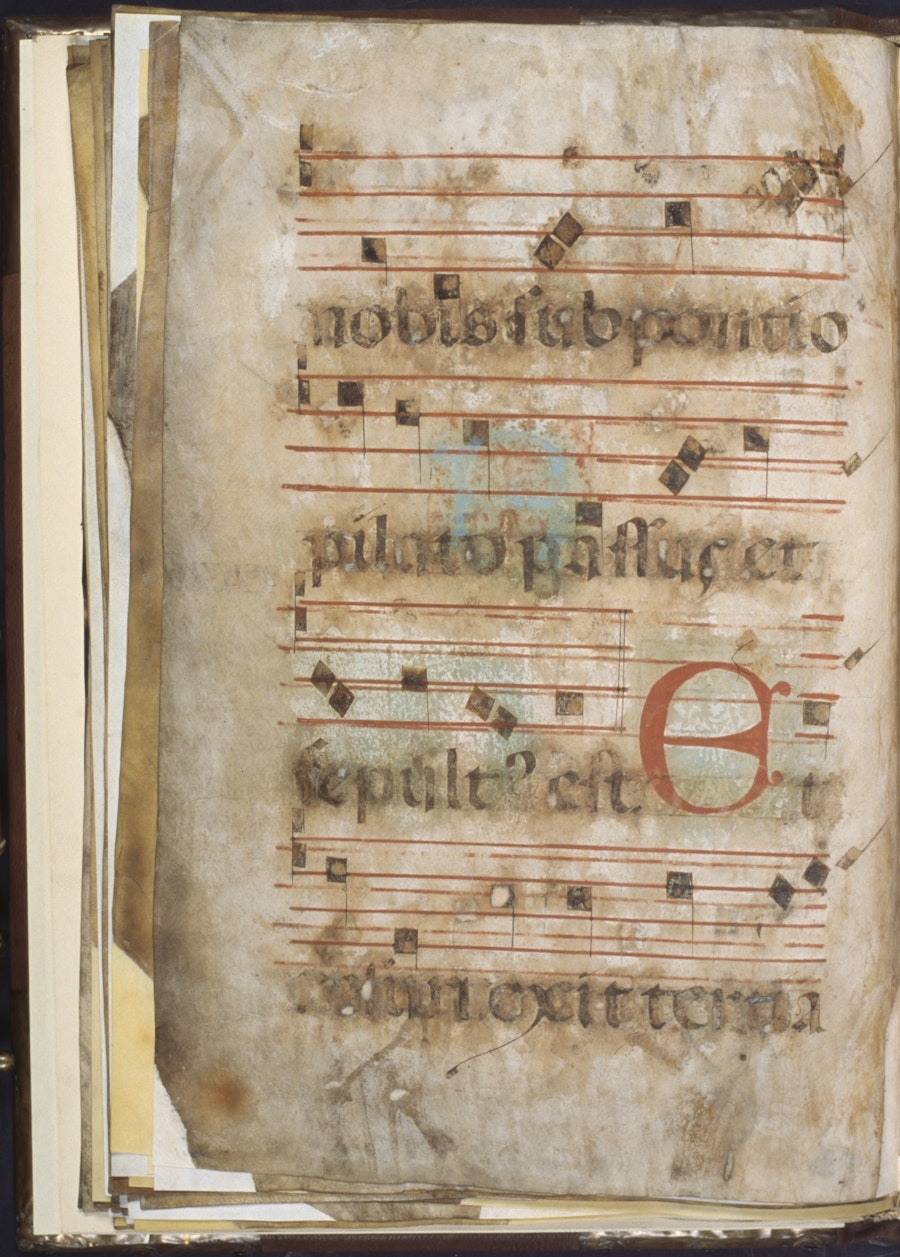 nobis sub pontio
pilato passus et
sepult⁹ est. Et
resurrexit tertia